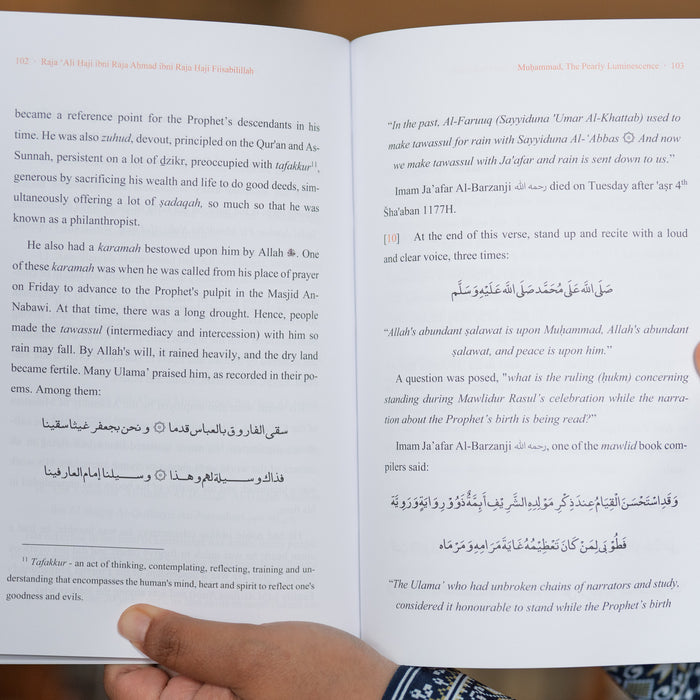 102 · Raja ‘Ali Haji ibni Raja Ahmad ibni Raja Haji Fiisabilillah
became a reference point for the Prophet’s descendants in his
time. He was also zuhud, devout, principled on the Qur'an and As-
Sunnah, persistent on a lot of ḍzikr, preoccupied with tafakkur¹¹,
generous by sacrificing his wealth and life to do good deeds, sim-
ultaneously offering a lot of ṣadaqah, so much so that he was
known as a philanthropist.
He also had a karamah bestowed upon him by Allah ﷻ. One
of these karamah was when he was called from his place of prayer
on Friday to advance to the Prophet's pulpit in the Masjid An-
Nabawi. At that time, there was a long drought. Hence, people
made the tawassul (intermediacy and intercession) with him so
rain may fall. By Allah's will, it rained heavily, and the dry land
became fertile. Many Ulama’ praised him, as recorded in their po-
ems. Among them:
سقى الفاروق بالعباس قدما ۞ و نحن بجعفر غيثا سقينا
فذاك وسيلة لهم وهذا ۞ وسيلنا إمام العارفينا
¹¹ Tafakkur - an act of thinking, contemplating, reflecting, training and un-
derstanding that encompasses the human's mind, heart and spirit to reflect one's
goodness and evils.
Muḥammad, The Pearly Luminescence · 103
“In the past, Al-Faruuq (Sayyiduna 'Umar Al-Khattab) used to
make tawassul for rain with Sayyiduna Al-‘Abbas ۞ And now
we make tawassul with Ja'afar and rain is sent down to us.”
Imam Ja’afar Al-Barzanji رحمه الله died on Tuesday after 'aṣr 4th
Ŝha'aban 1177H.
[10] At the end of this verse, stand up and recite with a loud
and clear voice, three times:
صَلَّى اللَّهُ عَلَى مُحَمَّد صَلَّى اللَّهُ عَلَيْهِ وَسَلَّم
“Allah's abundant ṣalawat is upon Muḥammad, Allah's abundant
ṣalawat, and peace is upon him.”
A question was posed, "what is the ruling (ḥukm) concerning
standing during Mawlidur Rasul’s celebration while the narra-
tion about the Prophet’s birth is being read?”
Imam Ja’afar Al-Barzanji رحمه الله, one of the mawlid book com-
pilers said:
وَقَدِ اسْتَحْسَنَ الْقِيَامُ عِنْدَ ذِكْرِ مَوْلِدِهِ الشَّرِيْفِ أَئِمَّةٌ ذَوُوْ رِوَايَةٍ وَرَوِيَّة
فَطُوْبَى لِمَنْ كَانَ تَعْظِيْمُهُ غَايَةَ مَرَامِهِ وَمَرْمَاه
“The Ulama’ who had unbroken chains of narrators and study,
considered it honourable to stand while the Prophet’s birth